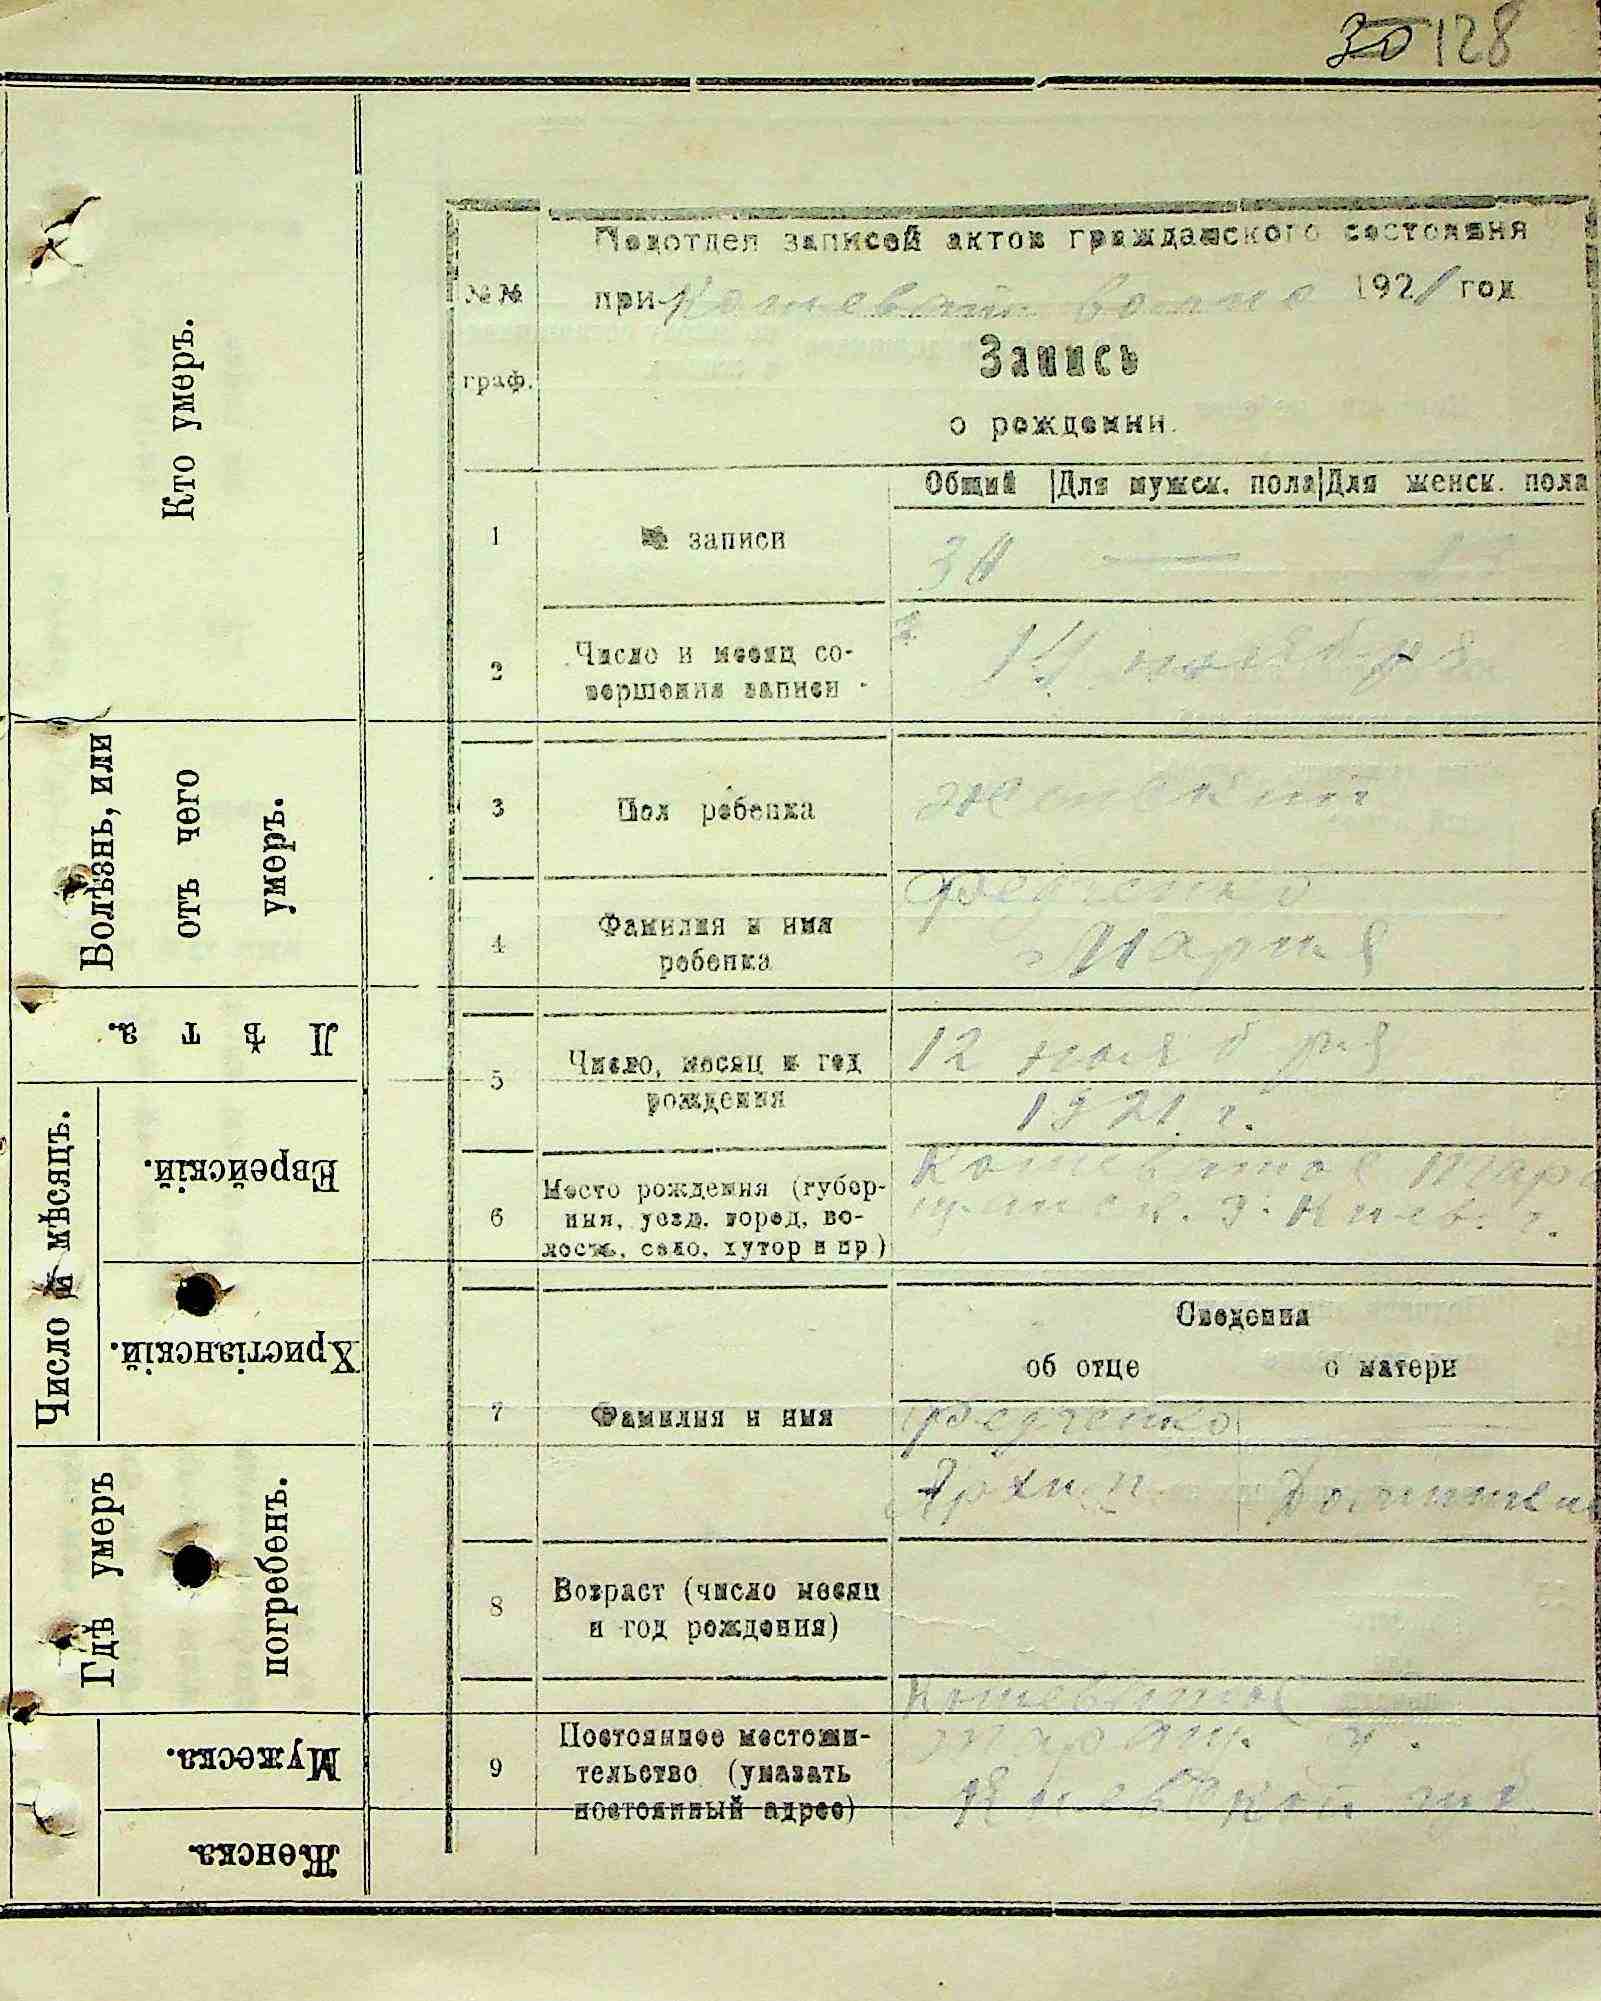 30 128
Кто умеръ.
Болѣзнь, или
отъ чего
умеръ.
Лѣта.
Число и мѣсяцъ.
Еврейскій.
Христіанскій.
Гдѣ умеръ
погребенъ.
Мужеска.
Женска.
Подотдел записей актов гражданского состояния
№№
граф.
при 1921 год
Запись
о рождении.
Общий Для мужск. пола Для женск. пола
1 № записи 30 —
2 Число и месяц со-
вершения записи 14 ноября
3 Пол ребенка женский
4 Фамилия и имя
ребенка
Федченко
Мария
5 Число, месяц и год
рождения
12 ноября
1921 г.
6 Место рождения (губер-
ния, уезд, город, во-
лость, село, хутор и пр)
Кошеватое Тара
щанск. у. Киев. г.
Сведения
об отце о матери
7 Фамилия и имя
Федченко —
Архип
8 Возраст (число месяц
и год рождения)
9 Постоянное местожи-
тельство (указать
постоянный адрес)
Кошеватое
Таращ. у.
Киевской губ.